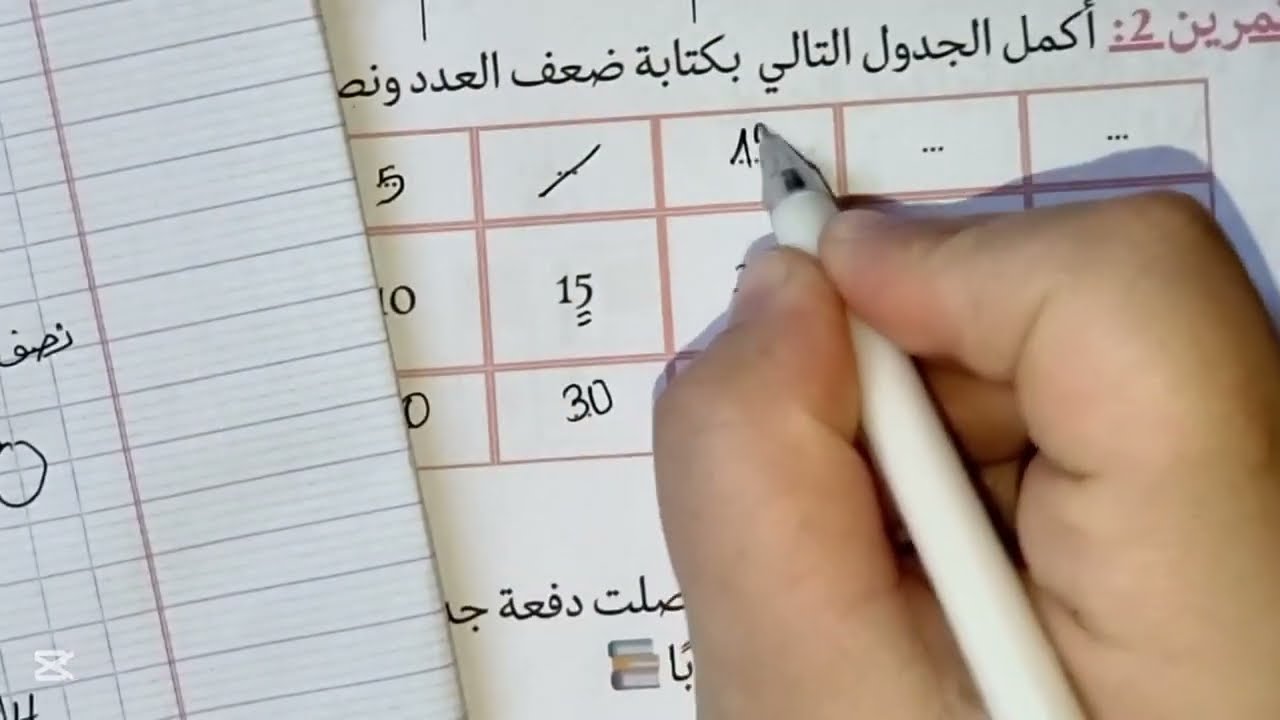 تمرين 2: أكمل الجدول التالي بكتابة ضعف العدد ونص
5 ... ...
10 15
0 30
نصف
صلت دفعة جد
بًا